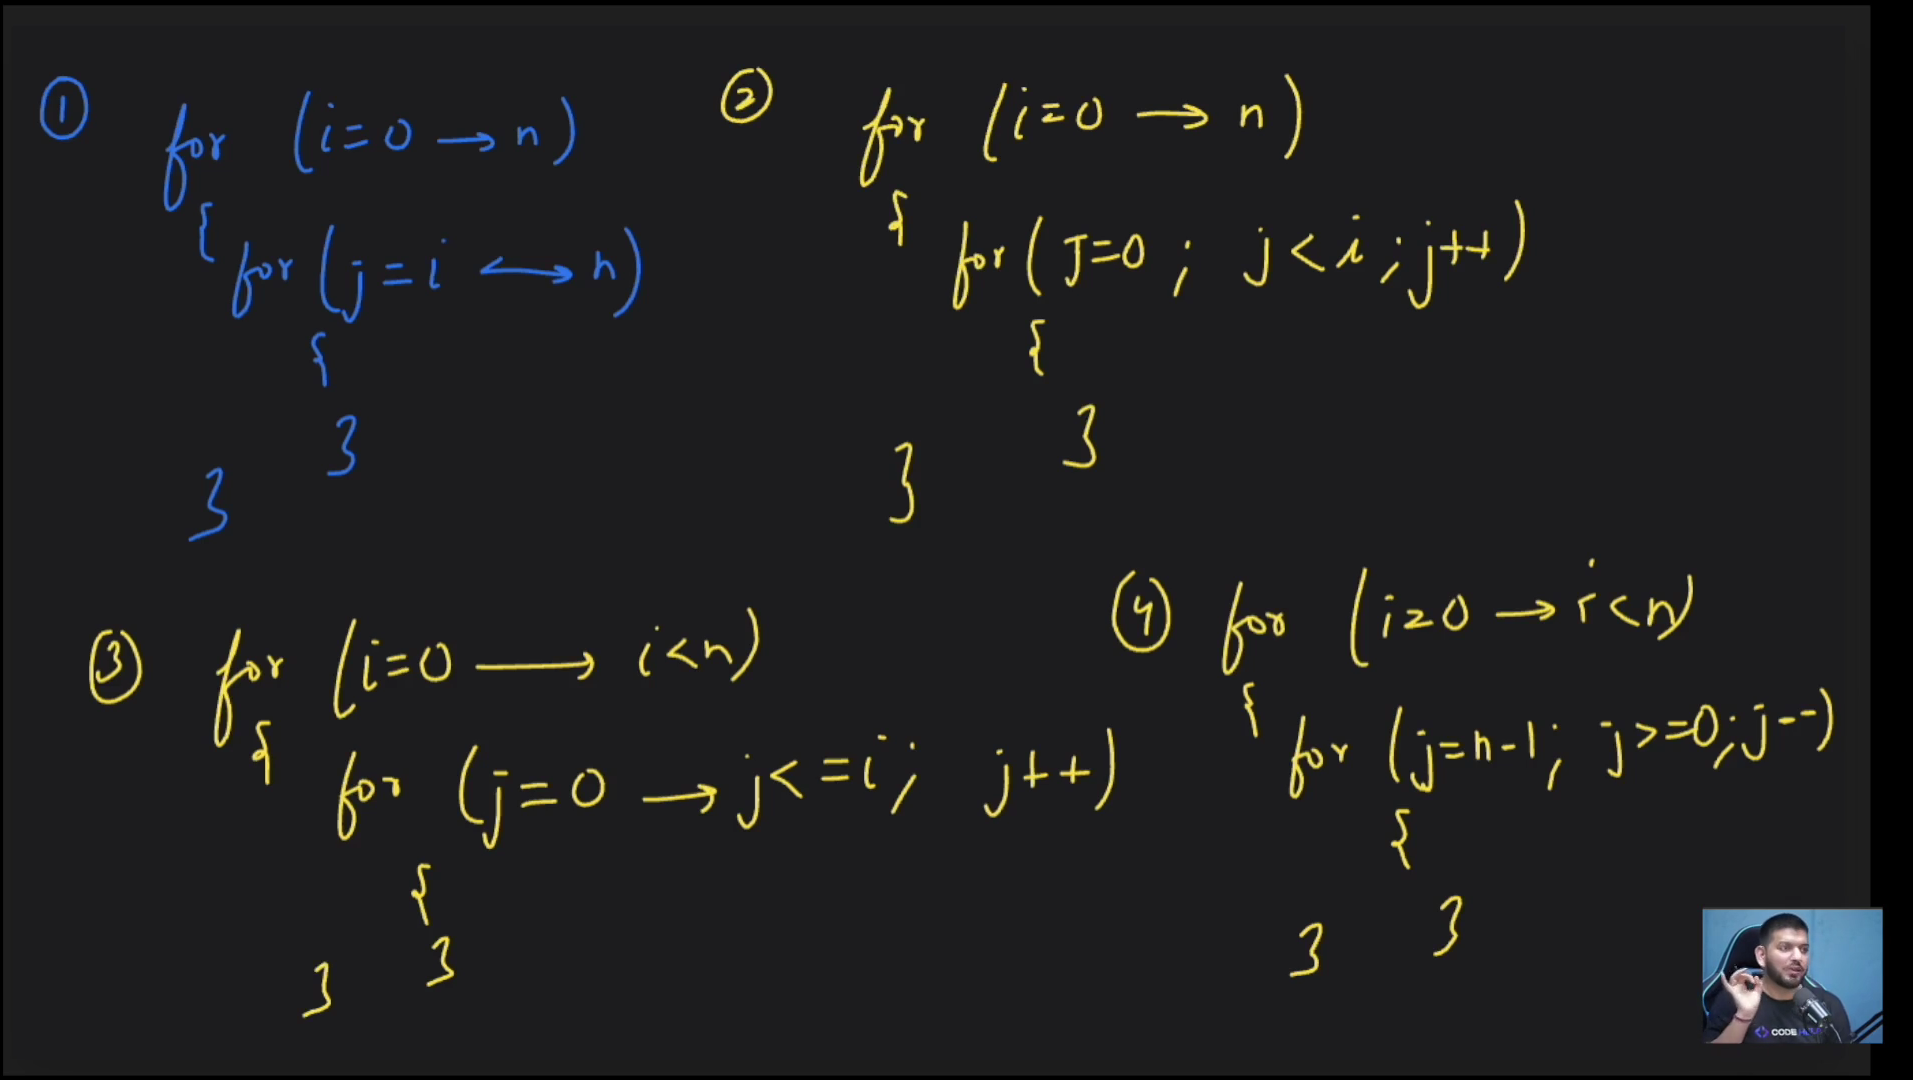 ①
for (i=0 → n)
{
for (j=i ↔ n)
{
}
}
②
for (i=0 → n)
{
for (J=0 ; j<i ; j++)
{
}
}
③
for (i=0 → i<n)
{
for (j=0 → j<=i; j++)
{
}
}
④
for (i=0 → i<n)
{
for (j=n-1; j>=0; j--)
{
}
}
CODE